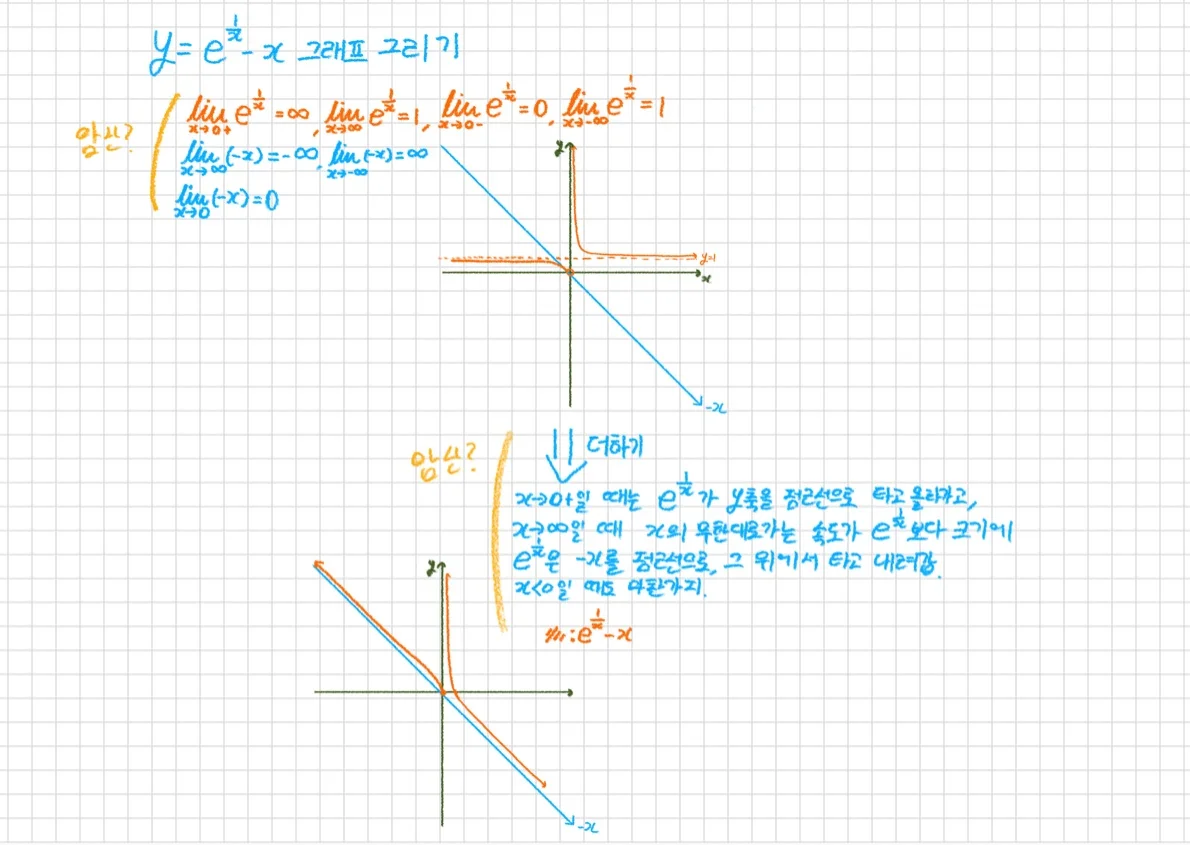 y = e^{1/x} - x 그래프 그리기
암산?
lim_{x→0+} e^{1/x} = ∞, lim_{x→∞} e^{1/x} = 1, lim_{x→0-} e^{1/x} = 0, lim_{x→-∞} e^{1/x} = 1
lim_{x→∞} (-x) = -∞, lim_{x→-∞} (-x) = ∞
lim_{x→0} (-x) = 0
y
y=1
x
-x
암산?
더하기
x→0+일 때는 e^{1/x}가 y축을 점근선으로 타고 올라가고,
x→∞일 때 x의 무한대로가는 속도가 e^{1/x}보다 크기에
e^{1/x}은 -x를 점근선으로, 그 위에서 타고 내려감.
x<0일 때도 마찬가지.
y
: e^{1/x} - x
-x